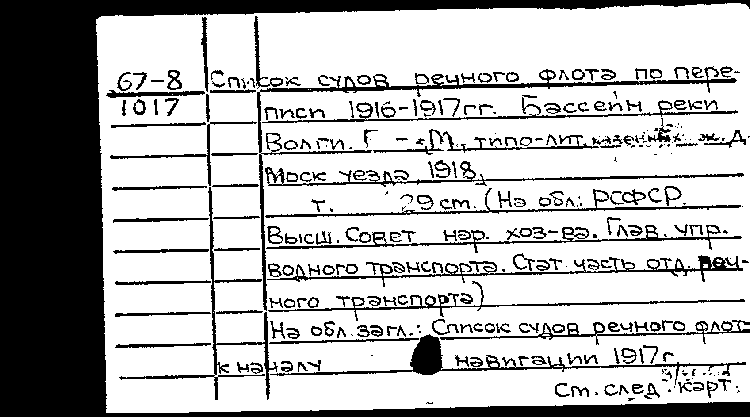 67-8 Список судов речного флота по пере-
1017 писи 1916-1917гг. Бассейн реки
Волги. Г - М, типо-лит. казенных ж. д.
Моск уезда, 1918,
т. 29 cm. (На обл: РСФСР.
Высш. Совет нар. хоз-ва. Глав. упр.
водного транспорта. Стат. часть отд. реч-
ного транспорта)
На обл. загл.: Список судов речного флот-
к началу навигации 1917г
См. след. карт.